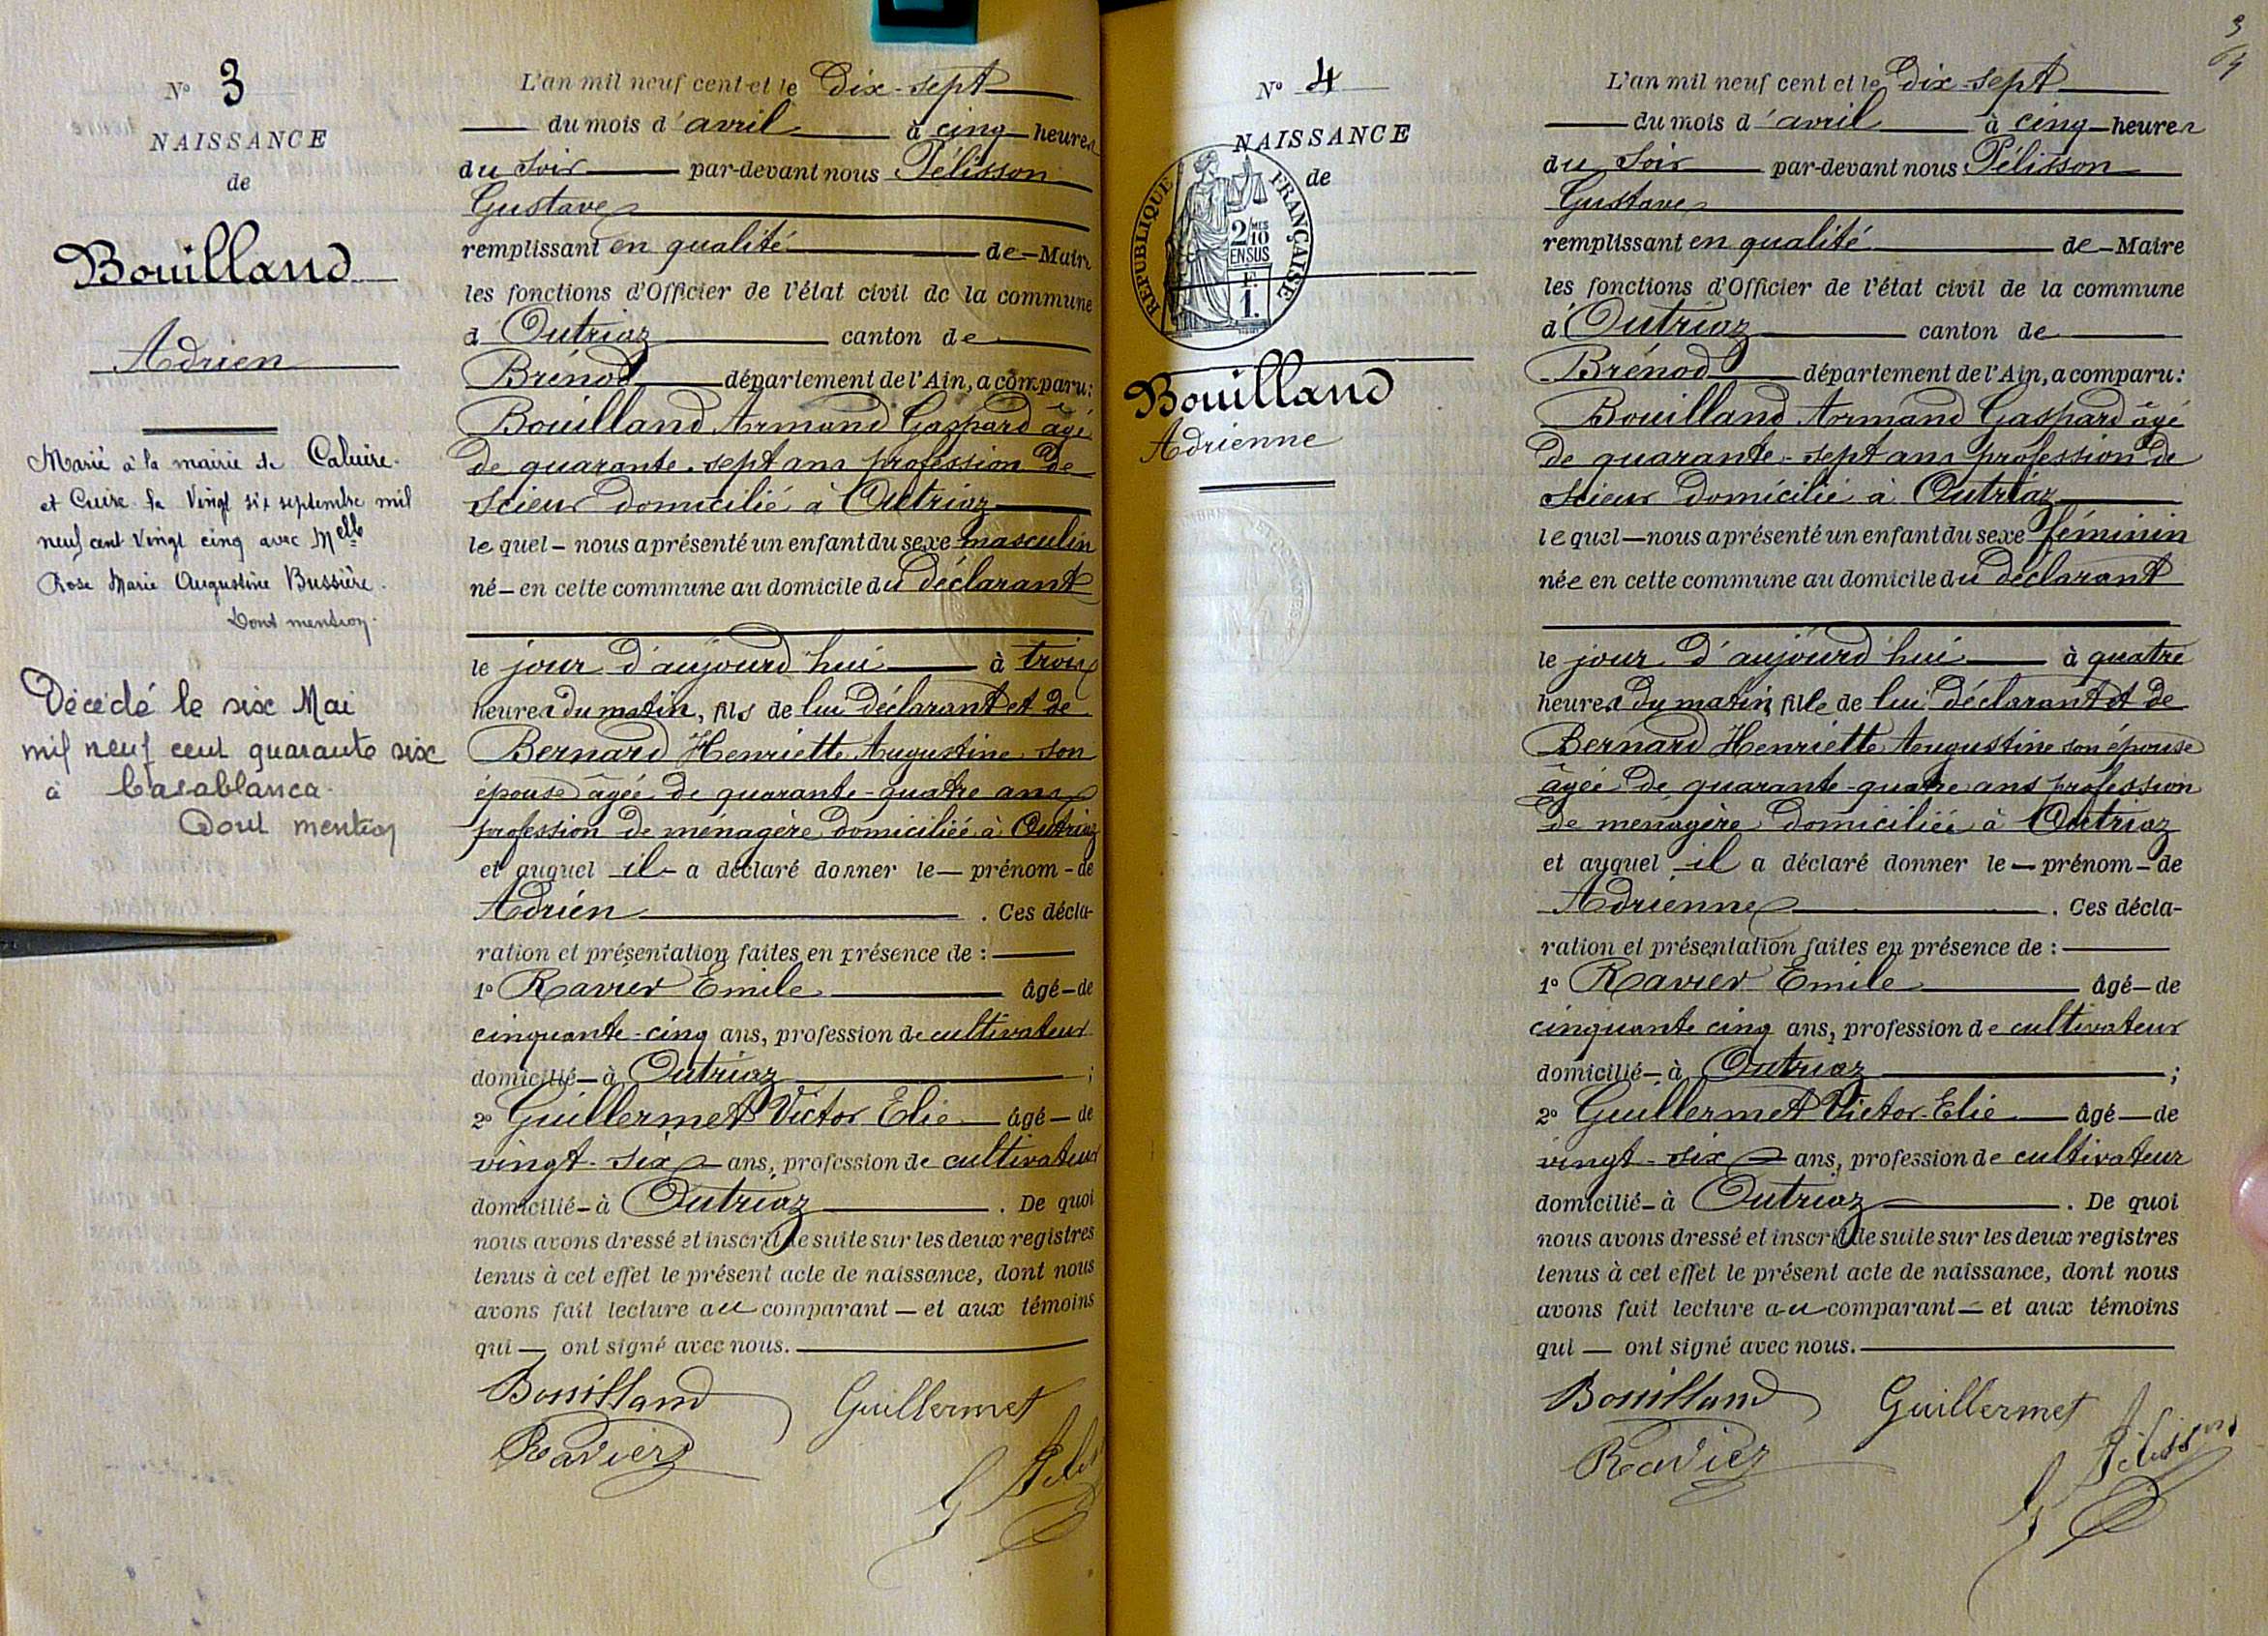 N° 3
NAISSANCE
de
Bouilland
Adrien
Marié à la mairie de Caluire
et Cuire le Vingt six septembre mil
neuf cent Vingt cinq avec Melle
Rose Marie Augustine Bussière.
Dont mention.
Décédé le six Mai
mil neuf cent quarante six
à Casablanca.
Dont mention
L'an mil neuf cent et le Dix-sept
du mois d'avril à cinq heures
du soir par-devant nous Pélisson
Gustave
remplissant en qualité de Maire
les fonctions d'Officier de l'état civil de la commune
d'Outriaz canton de
Brénod département de l'Ain, a comparu:
Bouilland Armand Gaspard âgé
de quarante-sept ans profession de
scieur domicilié à Outriaz
le quel nous a présenté un enfant du sexe masculin
né en cette commune au domicile du déclarant
le jour d'aujourd'hui à trois
heures du matin, fils de lui déclarant et de
Bernard Henriette Augustine son
épouse âgée de quarante-quatre ans
profession de ménagère domiciliée à Outriaz
et auquel il a déclaré donner le prénom de
Adrien. Ces décla-
ration et présentation faites en présence de :
1° Ravier Emile âgé de
cinquante-cinq ans, profession de cultivateur
domicilié à Outriaz ;
2° Guillermet Victor Elie âgé de
vingt-six ans, profession de cultivateur
domicilié à Outriaz. De quoi
nous avons dressé et inscrit de suite sur les deux registres
tenus à cet effet le présent acte de naissance, dont nous
avons fait lecture au comparant et aux témoins
qui ont signé avec nous.
Bouilland Guillermet
Ravier
3
N° 4
NAISSANCE
de
REPUBLIQUE FRANÇAISE
2/MES
10
EN SUS
F.
1.
Bouilland
Adrienne
L'an mil neuf cent et le dix-sept
du mois d'avril à cinq heures
du soir par-devant nous Pélisson
Gustave
remplissant en qualité de Maire
les fonctions d'Officier de l'état civil de la commune
d'Outriaz canton de
Brénod département de l'Ain, a comparu:
Bouilland Armand Gaspard âgé
de quarante-sept ans profession de
scieur domicilié à Outriaz
le quel nous a présenté un enfant du sexe féminin
née en cette commune au domicile du déclarant
le jour d'aujourd'hui à quatre
heures du matin, fille de lui déclarant et de
Bernard Henriette Augustine son épouse
âgée de quarante-quatre ans profession
de ménagère domiciliée à Outriaz
et auquel il a déclaré donner le prénom de
Adrienne. Ces décla-
ration et présentation faites en présence de :
1° Ravier Emile âgé de
cinquante cinq ans, profession de cultivateur
domicilié à Outriaz ;
2° Guillermet Victor-Elie âgé de
vingt-six ans, profession de cultivateur
domicilié à Outriaz. De quoi
nous avons dressé et inscrit de suite sur les deux registres
tenus à cet effet le présent acte de naissance, dont nous
avons fait lecture au comparant et aux témoins
qui ont signé avec nous.
Bouilland Guillermet
Ravier G Pélisson